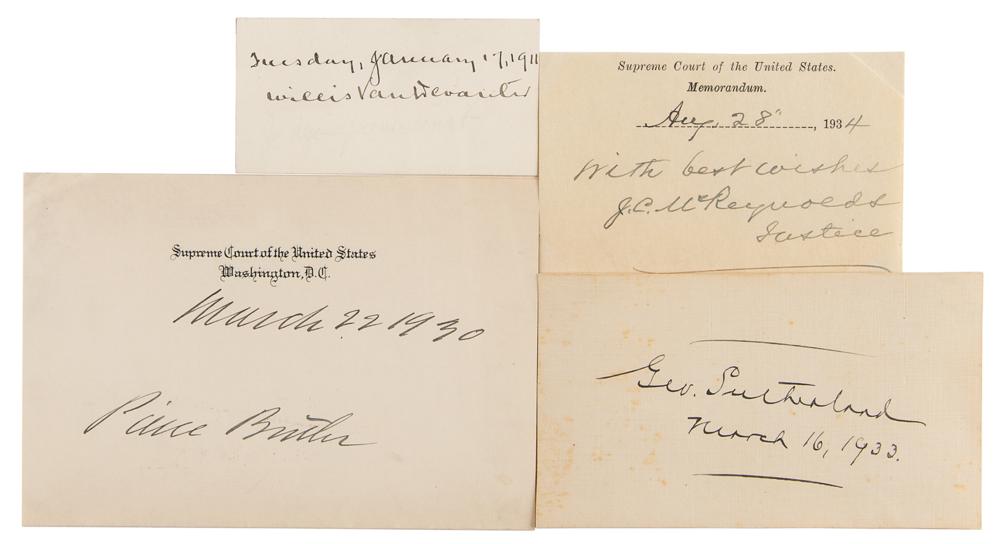 Tuesday, January 17, 1911
Willis Van Devanter
Supreme Court of the United States.
Memorandum.
Aug. 28", 1934
With best wishes
J.C. McReynolds
Justice
Supreme Court of the United States
Washington, D.C.
March 22 1930
Pierce Butler
Geo. Sutherland
March 16, 1933.